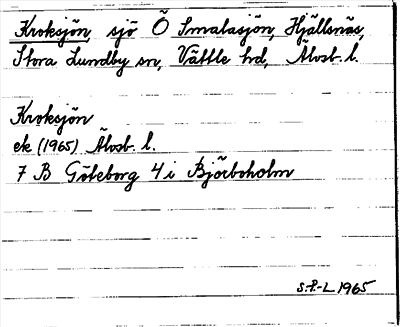 Kroksjön, sjö Ö Smalasjön, Hjällsnäs,
Stora Lundby sn, Vättle hd, Älvsb. l.
Kroksjön
ek (1965) Älvsb. l.
7 B Göteborg 4 i Björboholm
S.P.-L 1965